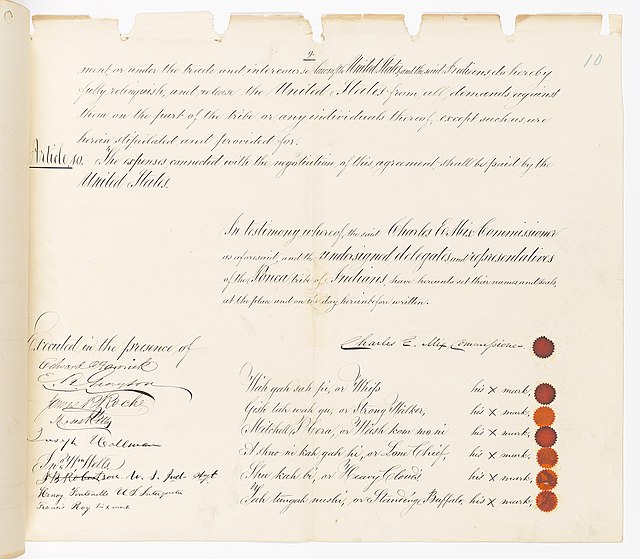 9.
10
ment or under the trade and intercourse laws of the United States and the said Indians do hereby
fully relinquish, and release the United States from all, demands against
them on the part of the tribe or any individuals thereof, except such as are
herein stipulated and provided for.
Article 10. The expenses connected with the negotiation of this agreement, shall be paid by the
United States.
In testimony whereof, the said Charles E. Mix Commissioner
as aforesaid, and the undersigned delegates and representatives
of the Ponca tribe of Indians, have hereunto set their names and seals,
at the place and on the day hereinbefore written.
Charles E. Mix Commissioner
Executed in the presence of
Edward
E. B. Grayson
James R. Roche
Moses Kelly
Joseph Hollman
Jno Wm Wells
J B Robertson U. S. Ind. Agt
Henry Fontenelle U S Interpreter
Francis Roy his x mark
Wah gah sah pi, or Whip his x mark,
Gish tah wah gu, or Strong Walker, his x mark,
Mitchell P. Cera, or Wash kom mo ni his x mark,
A shno ni kah gah hi, or Lone Chief, his x mark,
Shu kah bi, or Heavy Clouds his x mark,
Tah tungah nushi, or Standing Buffalo, his x mark,